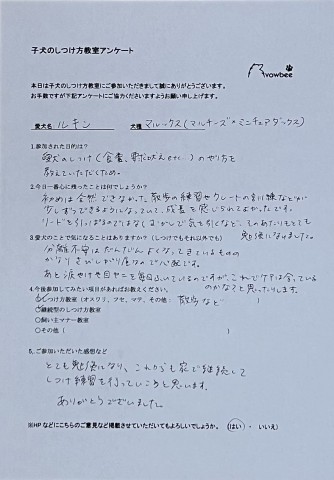 子犬のしつけ方教室アンケート
wowbee
本日は子犬のしつけ方教室にご参加いただきまして誠にありがとうございます。
お手数ですが下記アンケートにご協力くださいますようお願い申し上げます。
愛犬名: ルキン 犬種 マルックス(マルチーズ×ミニチュアダックス)
1.参加された目的は?
愛犬のしつけ(食糞、無駄吠えetc...)のやり方を
教えていただくため。
2.今日一番心に残ったことは何でしょうか?
初めは全然できなかった、散歩の練習やクレートの訓練などが
少しずつできるようになっていて、成長を感じられてよかったです。
リードを引っぱるのではなくほめて気を引くなど、そのあたりもとても
勉強になりました。
3.愛犬のことで気になることはありますか?(しつけでもそれ以外でも)
分離不安はだんだんよくなってきているものの
かなりさびしがり屋なので心配です。
あと涙やけを目ヤニを毎日ふいているのですが、これでケアは合っている
のかなぁと思ったりします。
4.今後参加してみたい項目があればお教えください。
○しつけ方教室(オスワリ、フセ、マテ、その他: 散歩など )
○継続型のしつけ方教室
○飼い主マナー教室
○その他( )
5.ご参加いただいた感想など
とても勉強になり、これからも家で継続して
しつけ練習を行っていこうと思います。
ありがとうございました。
※HPなどにこちらのご意見など掲載させていただいてもよろしいでしょうか。 (はい ・ いいえ)